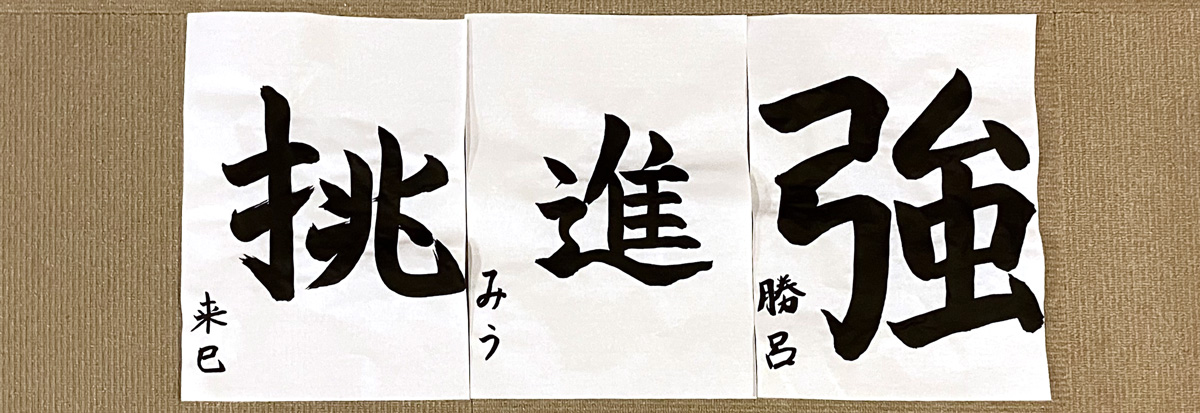 強
勝呂
進
みう
挑
来巳